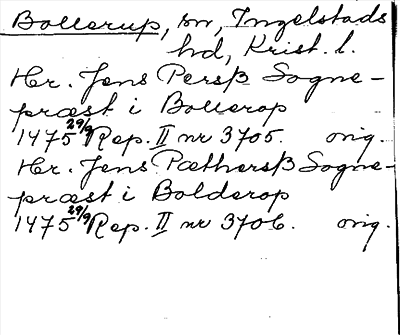 Bollerup, sn, Ingelstads
hd, Krist. l.
Hr. Jens Persß Sogne-
præst i Bollerop
1475 29/9 Rep. II nr 3705. orig.
Hr. Jens Pæthersß Sogne-
præst i Bolderop
1475 29/9 Rep. II nr 3706. orig.